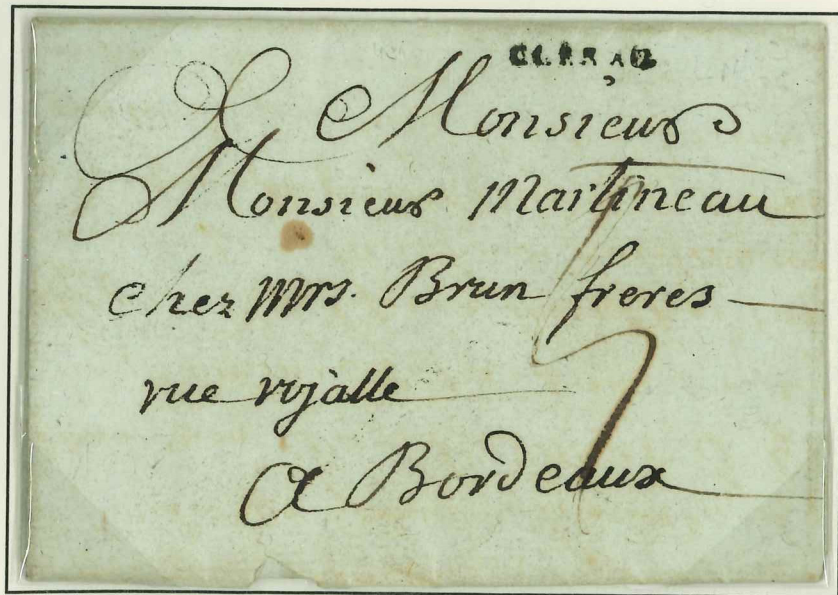 CLERAC
Monsieur
Monsieur Martineau
chez Mrs. Brun freres
rue royalle
a Bordeaux